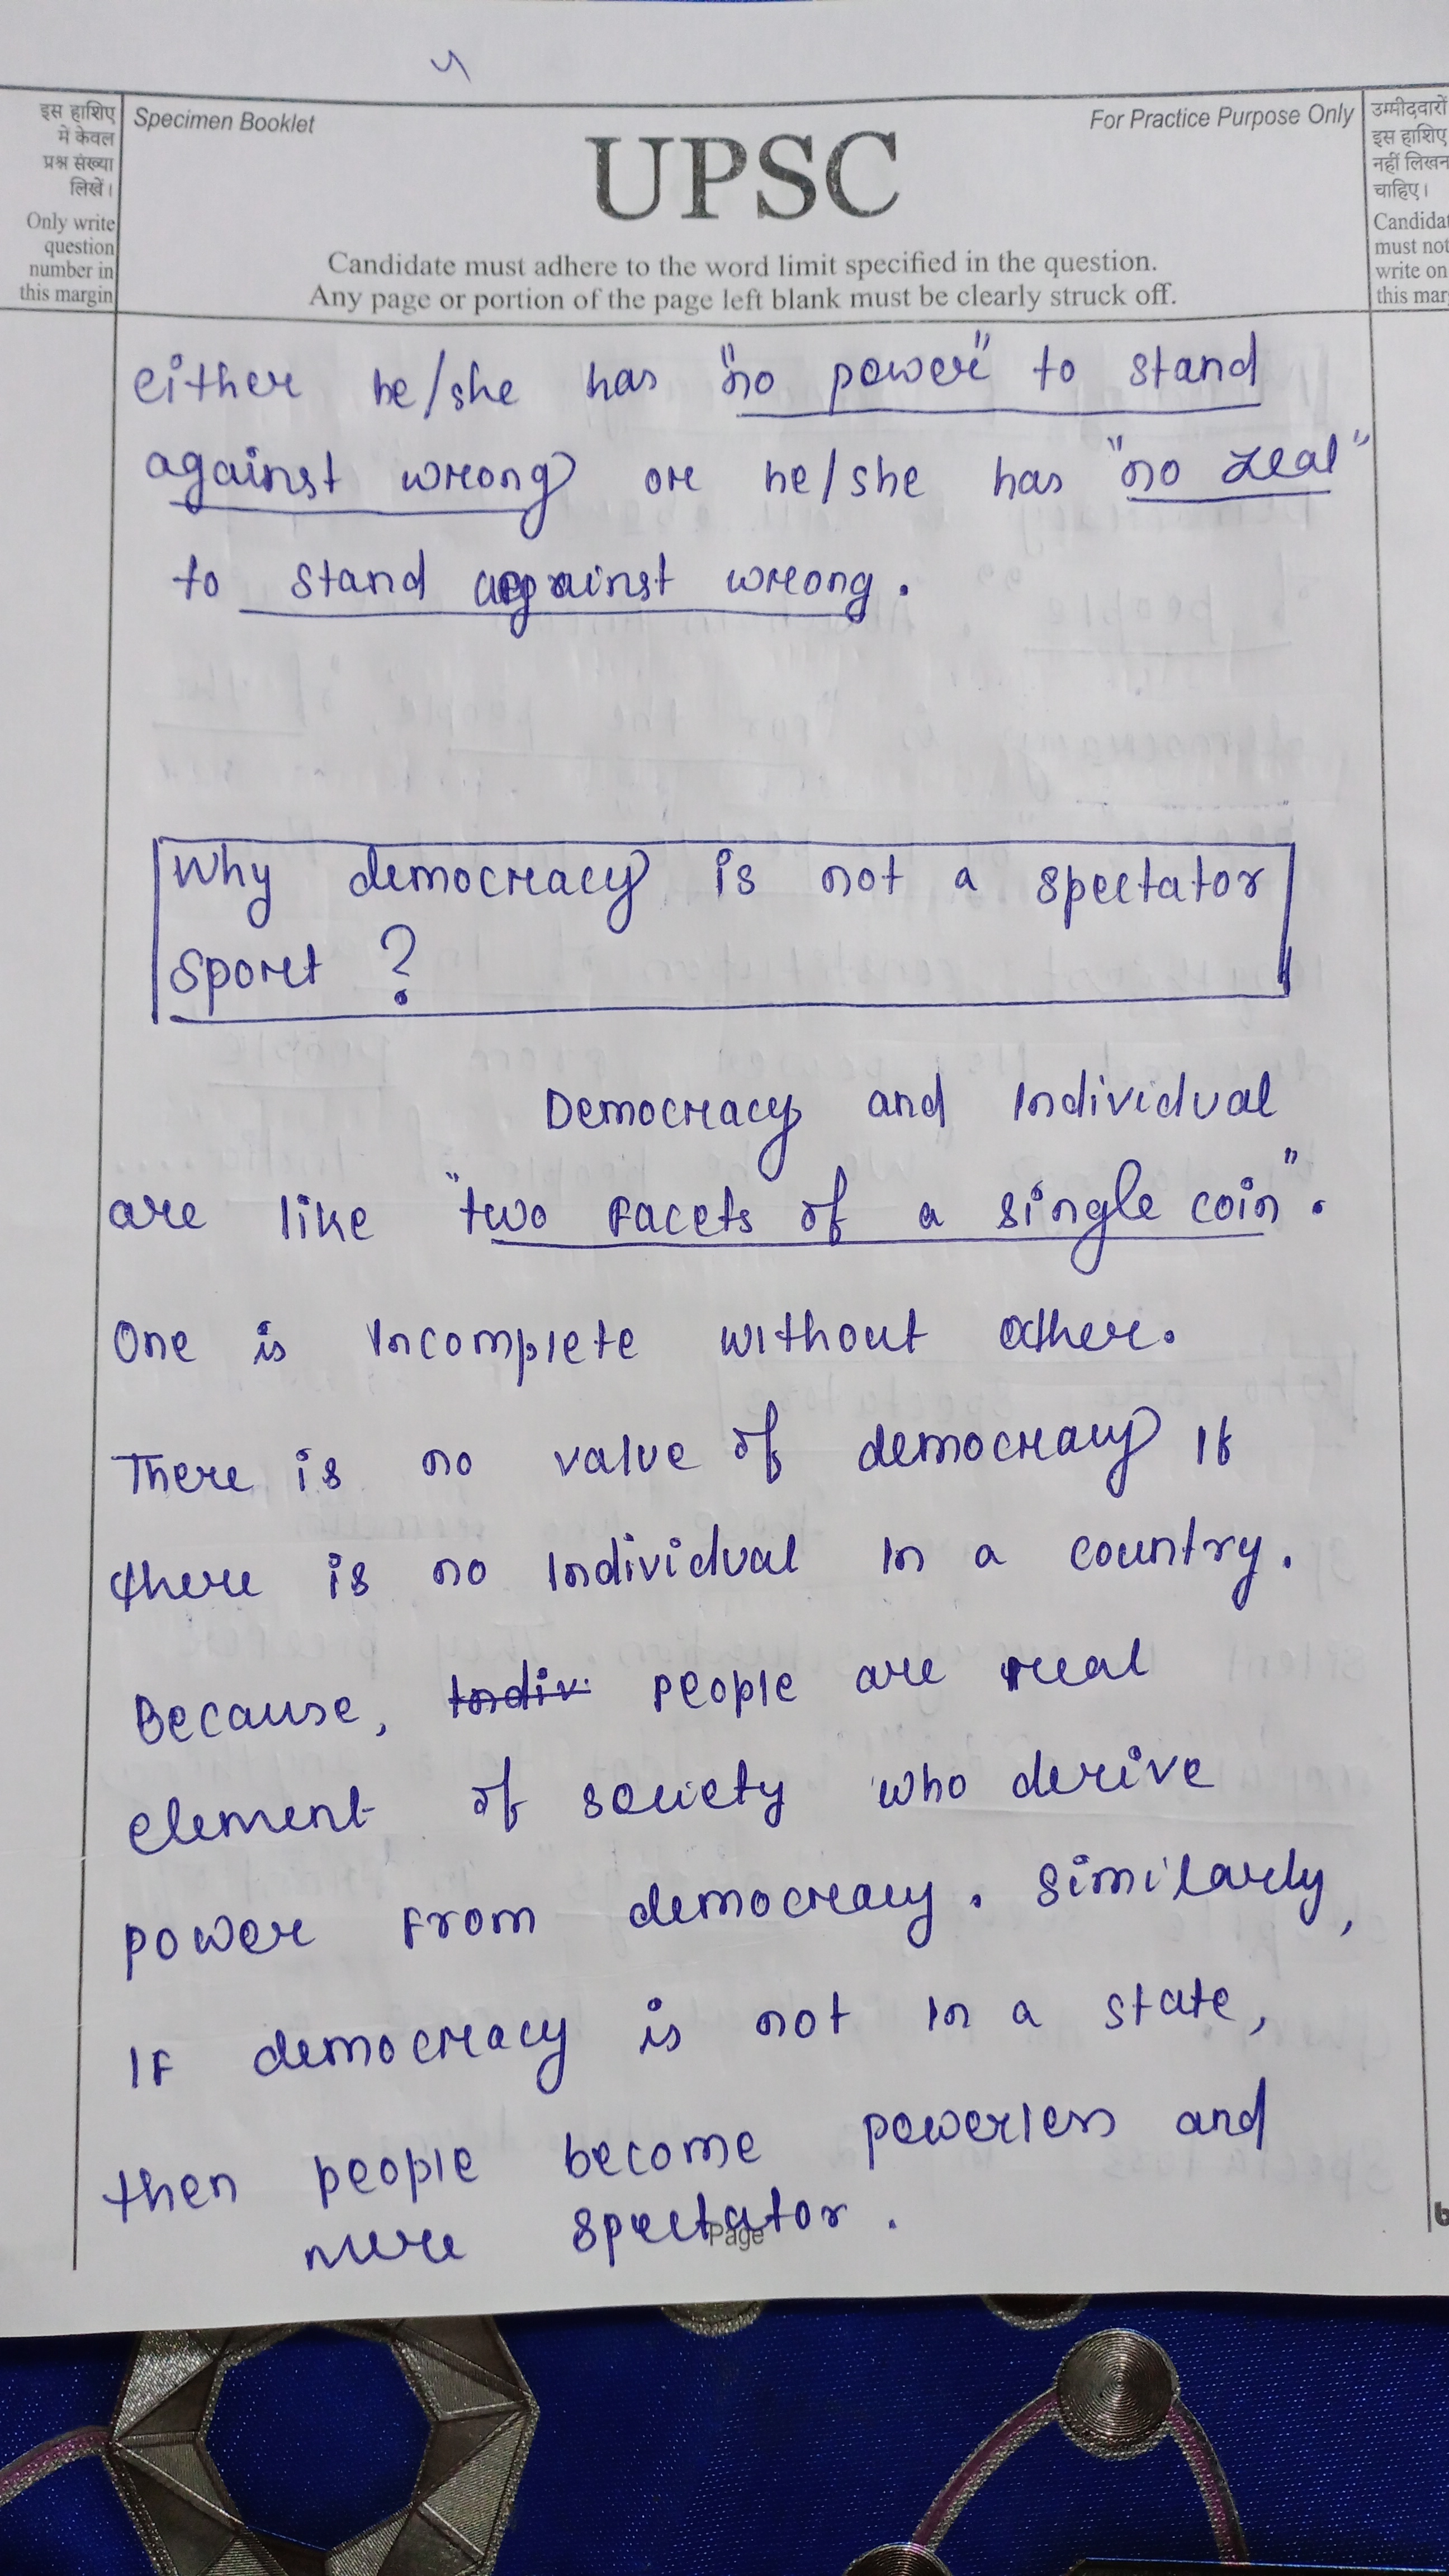 4
इस हाशिए
में केवल
प्रश्न संख्या
लिखें।
Only write
question
number in
this margin
Specimen Booklet
For Practice Purpose Only
UPSC
Candidate must adhere to the word limit specified in the question.
Any page or portion of the page left blank must be clearly struck off.
उम्मीदवारों
इस हाशिए
नहीं लिखन
चाहिए।
Candidat
must not
write on
this mar
either he/she has "no power" to stand
against wrong or he/she has "no zeal"
to stand against wrong.
Why democracy is not a spectator
sport ?
Democracy and Individual
are like "two facets of a single coin".
One is incomplete without other.
There is no value of democracy if
there is no individual in a country.
Because, Indiv. people are real
element of society who derive
power from democracy. Similarly,
If democracy is not in a state,
then people become powerless and
mere spectator.
Page